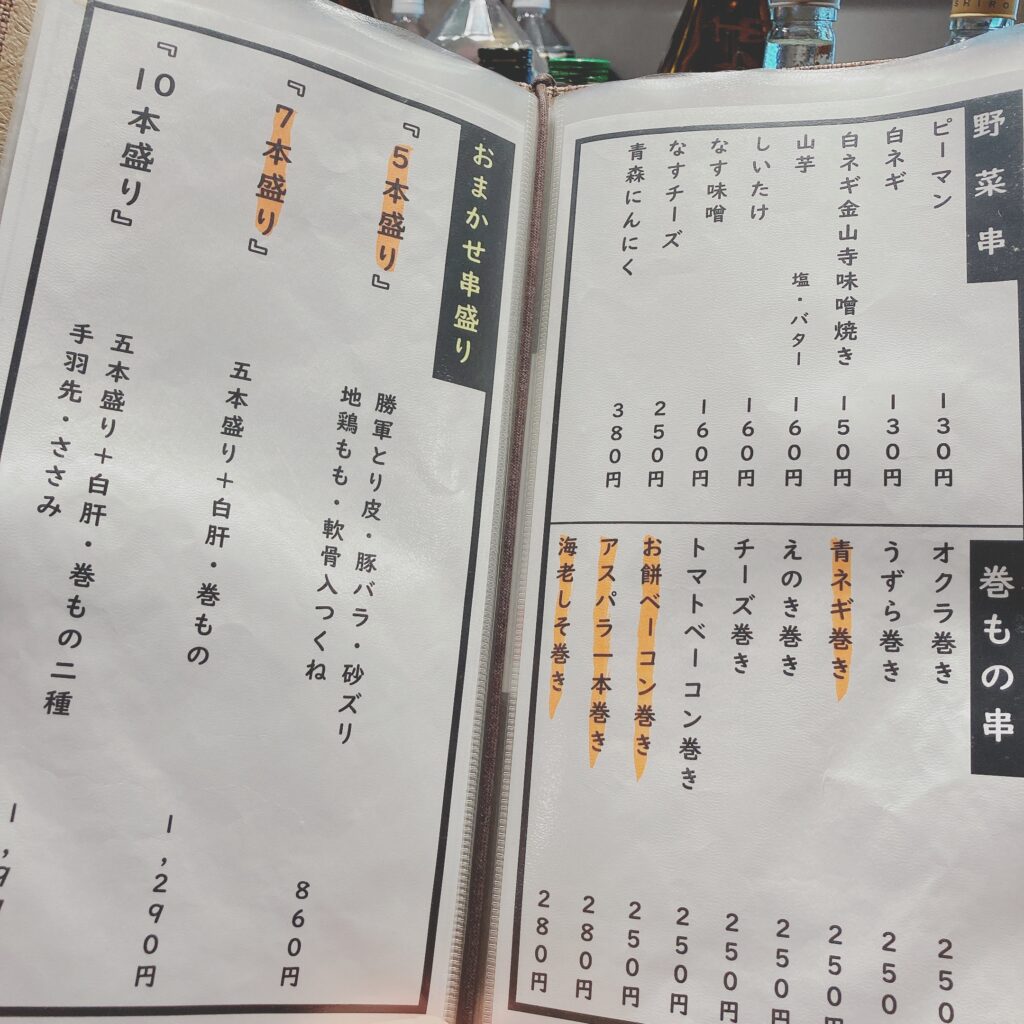 野菜串
ピーマン 130円
白ネギ 130円
白ネギ金山寺味噌焼き 150円
山芋 塩・バター 160円
しいたけ 160円
なす味噌 160円
なすチーズ 250円
青森にんにく 380円
巻もの串
オクラ巻き 250
うずら巻き 250
青ネギ巻き 250円
えのき巻き 250円
チーズ巻き 250円
トマトベーコン巻き 250円
お餅ベーコン巻き 250円
アスパラ一本巻き 280円
海老しそ巻き 280円
おまかせ串盛り
『5本盛り』
勝軍とり皮・豚バラ・砂ズリ
地鶏もも・軟骨入つくね
860円
『7本盛り』
五本盛り+白肝・巻もの
1,290円
『10本盛り』
五本盛り+白肝・巻もの二種
手羽先・ささみ
SHIRO